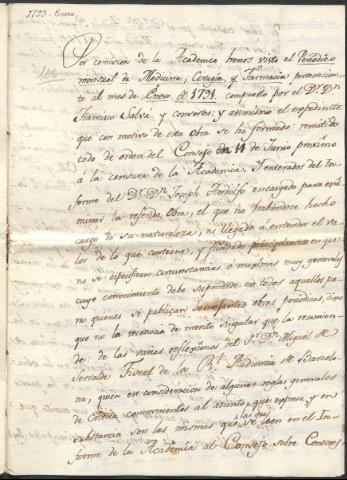 1793. Enero.
106
Por comision de la Academia hemos visto el Periodico
mensual de Medicina, Cirugia, y Farmacia pertenecien-
te al mes de Enero de 1791. compuesto por el Dr. Dn.
Francisco Salvá, y consortes: y asimismo el expediente
que con motivo de esta obra se ha formado: remitido
todo de orden del Consejo en 14 de Junio proximo
a la censura de la Academia. Y enterados del In-
forme del Dr. Dn. Joseph encargado para exa-
minar la referida obra, el que no habiendose hecho
cargo de su naturaleza, ni llegado a entender el va-
lor de lo que contiene, y fundado principalmente en que
no se especifican circunstancias ó maximas muy generales
cuyo conocimiento debe suponerse en todos aquellos pa-
ra quienes se publican semejantes obras periodicas, dixo
que no la reconocia de merito singular que la recomien-
de: de las varias reflexiones del Sr. Dn. Miguel de
Serralde Fiscal de la Rl. Audiencia de Barcelo-
na, quien en consideracion de algunas reglas generales
de Critica concernientes al asunto, que expresa, y en
substancia son las mismas que las que se leen en el In-
forme de la Academia al Consejo sobre